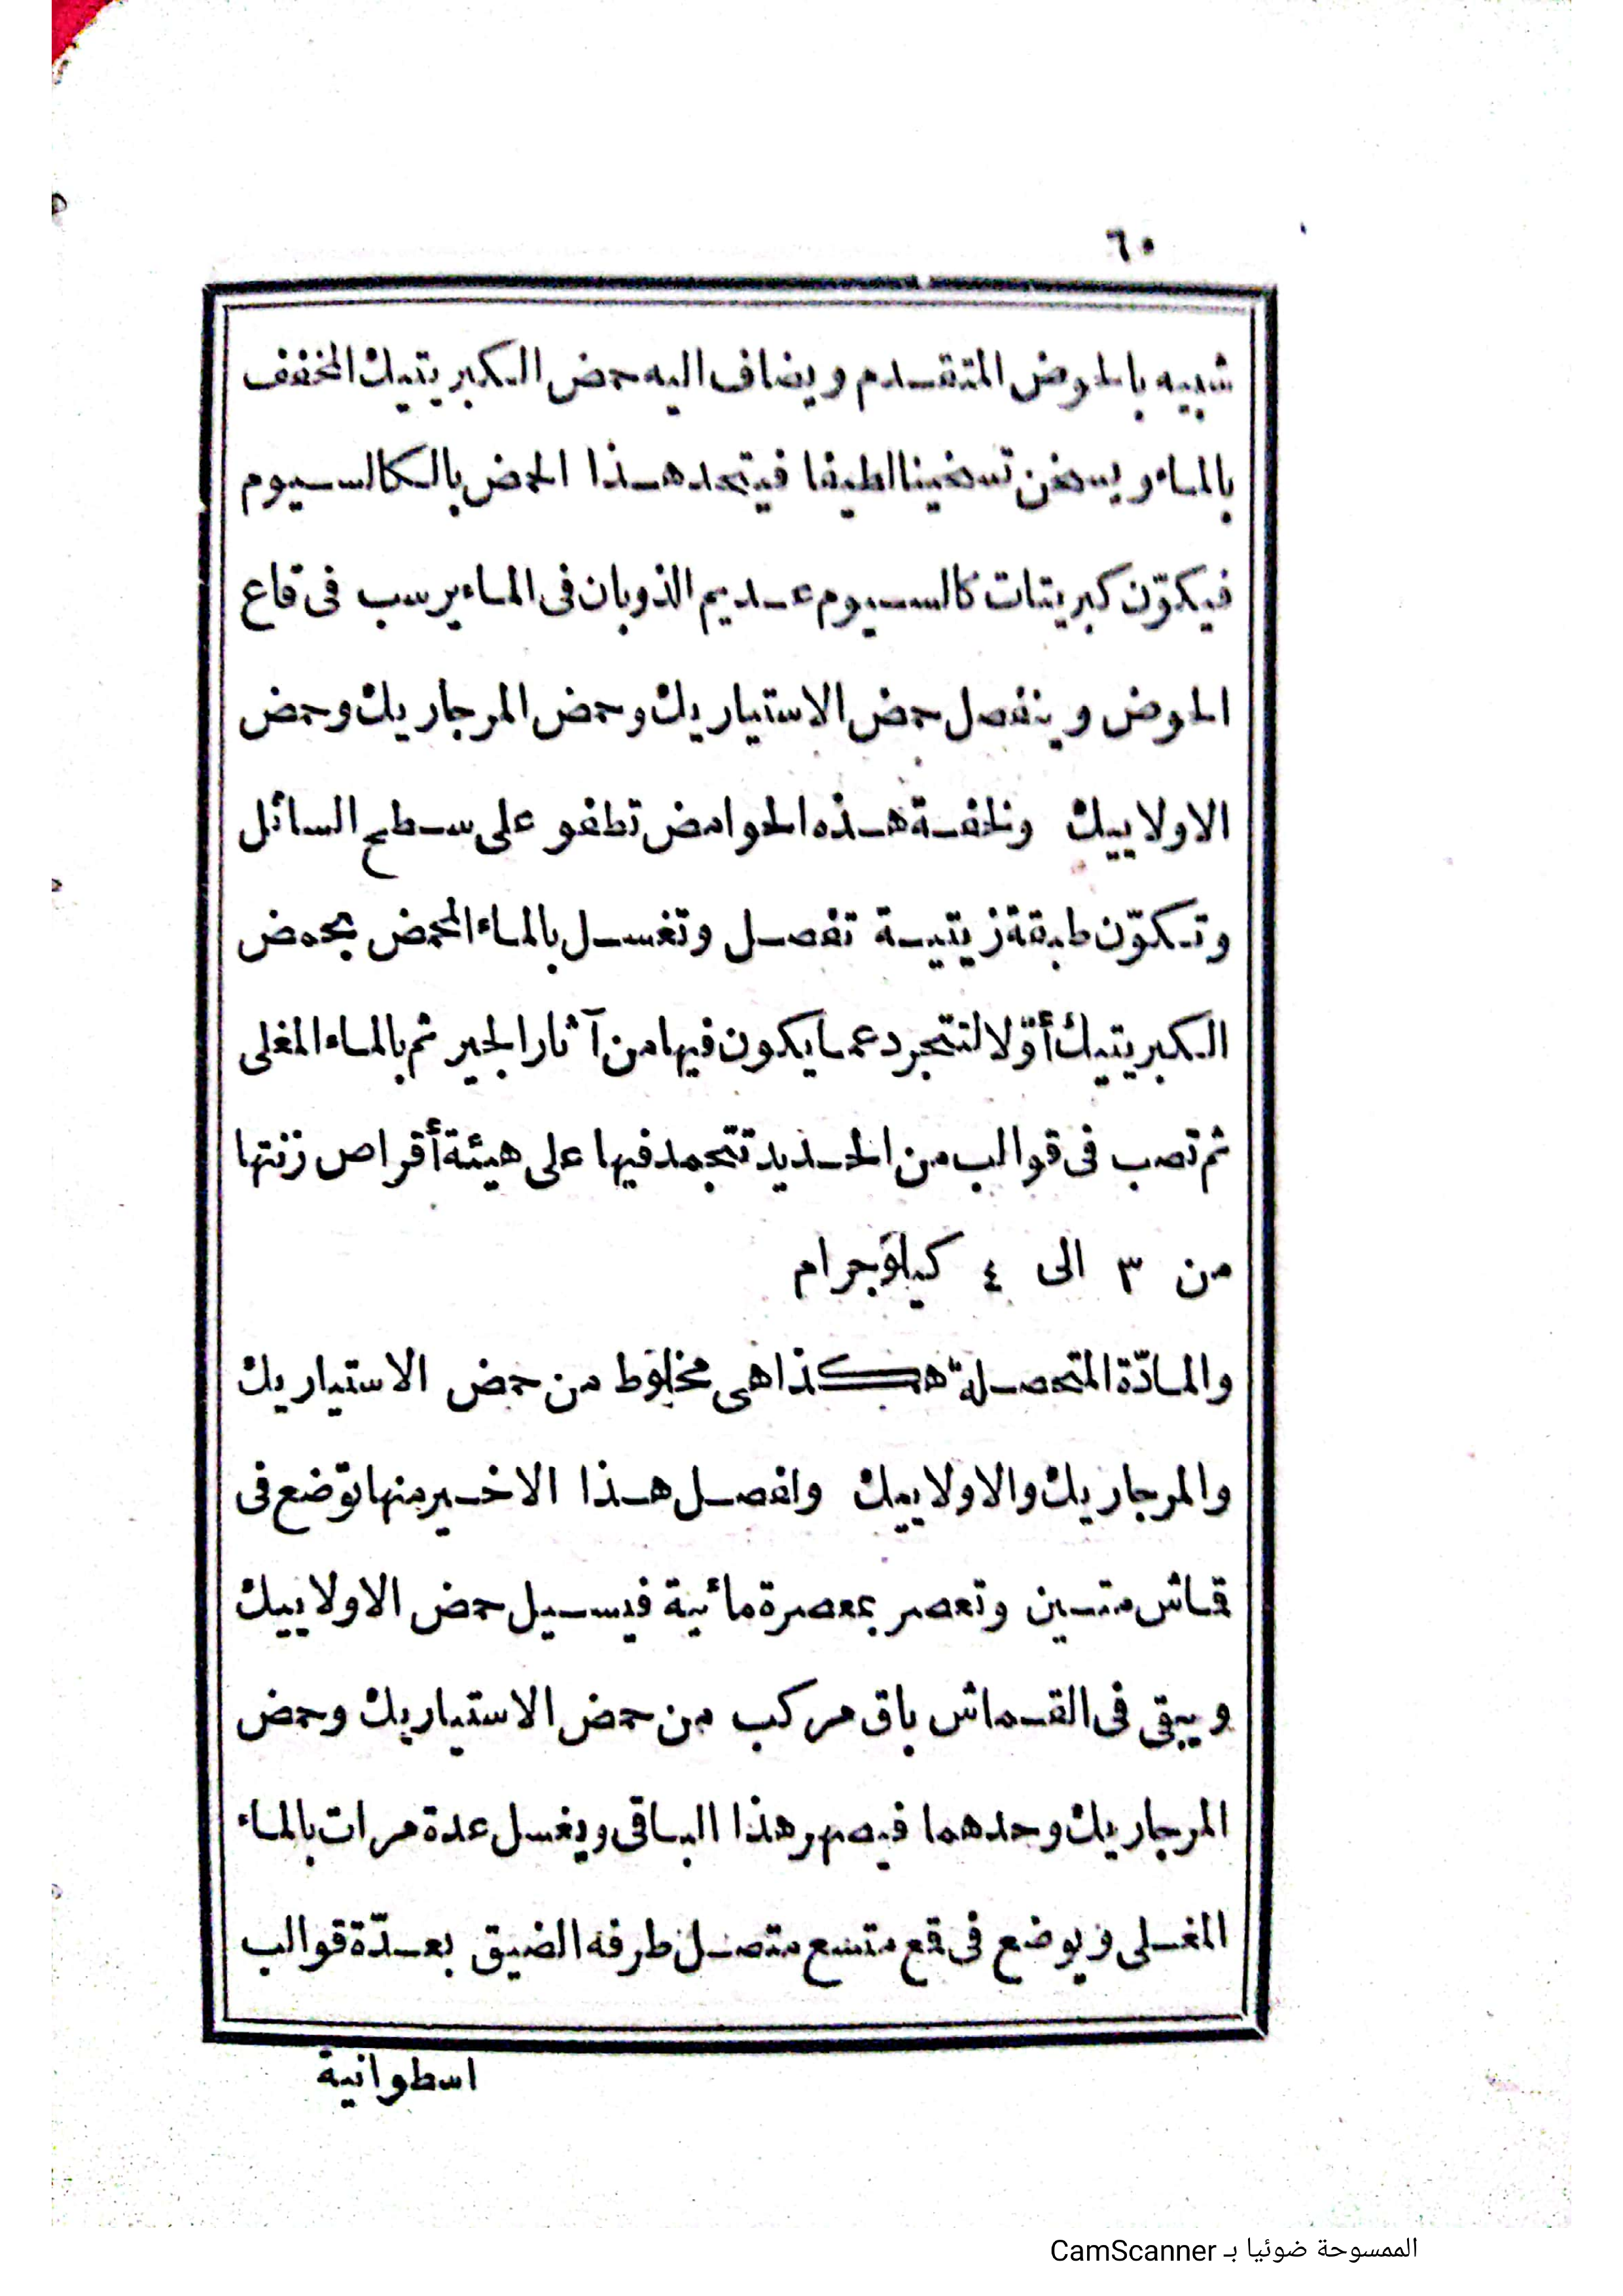 ٦٠
شبيه بالحوض المتقدم ويضاف اليه حمض الكبريتيك المخفف
بالماء ويسخن تسخينا لطيفا فيتحد هذا الحمض بالكالسيوم
فيكوّن كبريتات كالسيوم عديم الذوبان فى الماء يرسب فى قاع
الحوض وينفصل حمض الاستياريك وحمض المرجاريك وحمض
الاولاييك ولخفة هذه الحوامض تطفو على سطح السائل
وتكوّن طبقة زيتية تفصل وتغسل بالماء المحمض بحمض
الكبريتيك أوّلا لتتجرد عما يكون فيها من آثار الجير ثم بالماء المغلى
ثم تصب فى قوالب من الحديد تتجمد فيها على هيئة أقراص زنتها
من ٣ الى ٤ كيلوجرام
والمادّة المتحصلة هكذا هى مخلوط من حمض الاستياريك
والمرجاريك والاولاييك ولفصل هذا الاخير منها توضع فى
قماش متين وتعصر بمعصرة مائية فيسيل حمض الاولاييك
ويبقى فى القماش باق مركب من حمض الاستياريك وحمض
المرجاريك وحدهما فيصهر هذا الباقى ويغسل عدة مرات بالماء
المغلى ويوضع فى قمع متسع متصل طرفه الضيق بعدّة قوالب
اسطوانية
الممسوحة ضوئيا بـ CamScanner